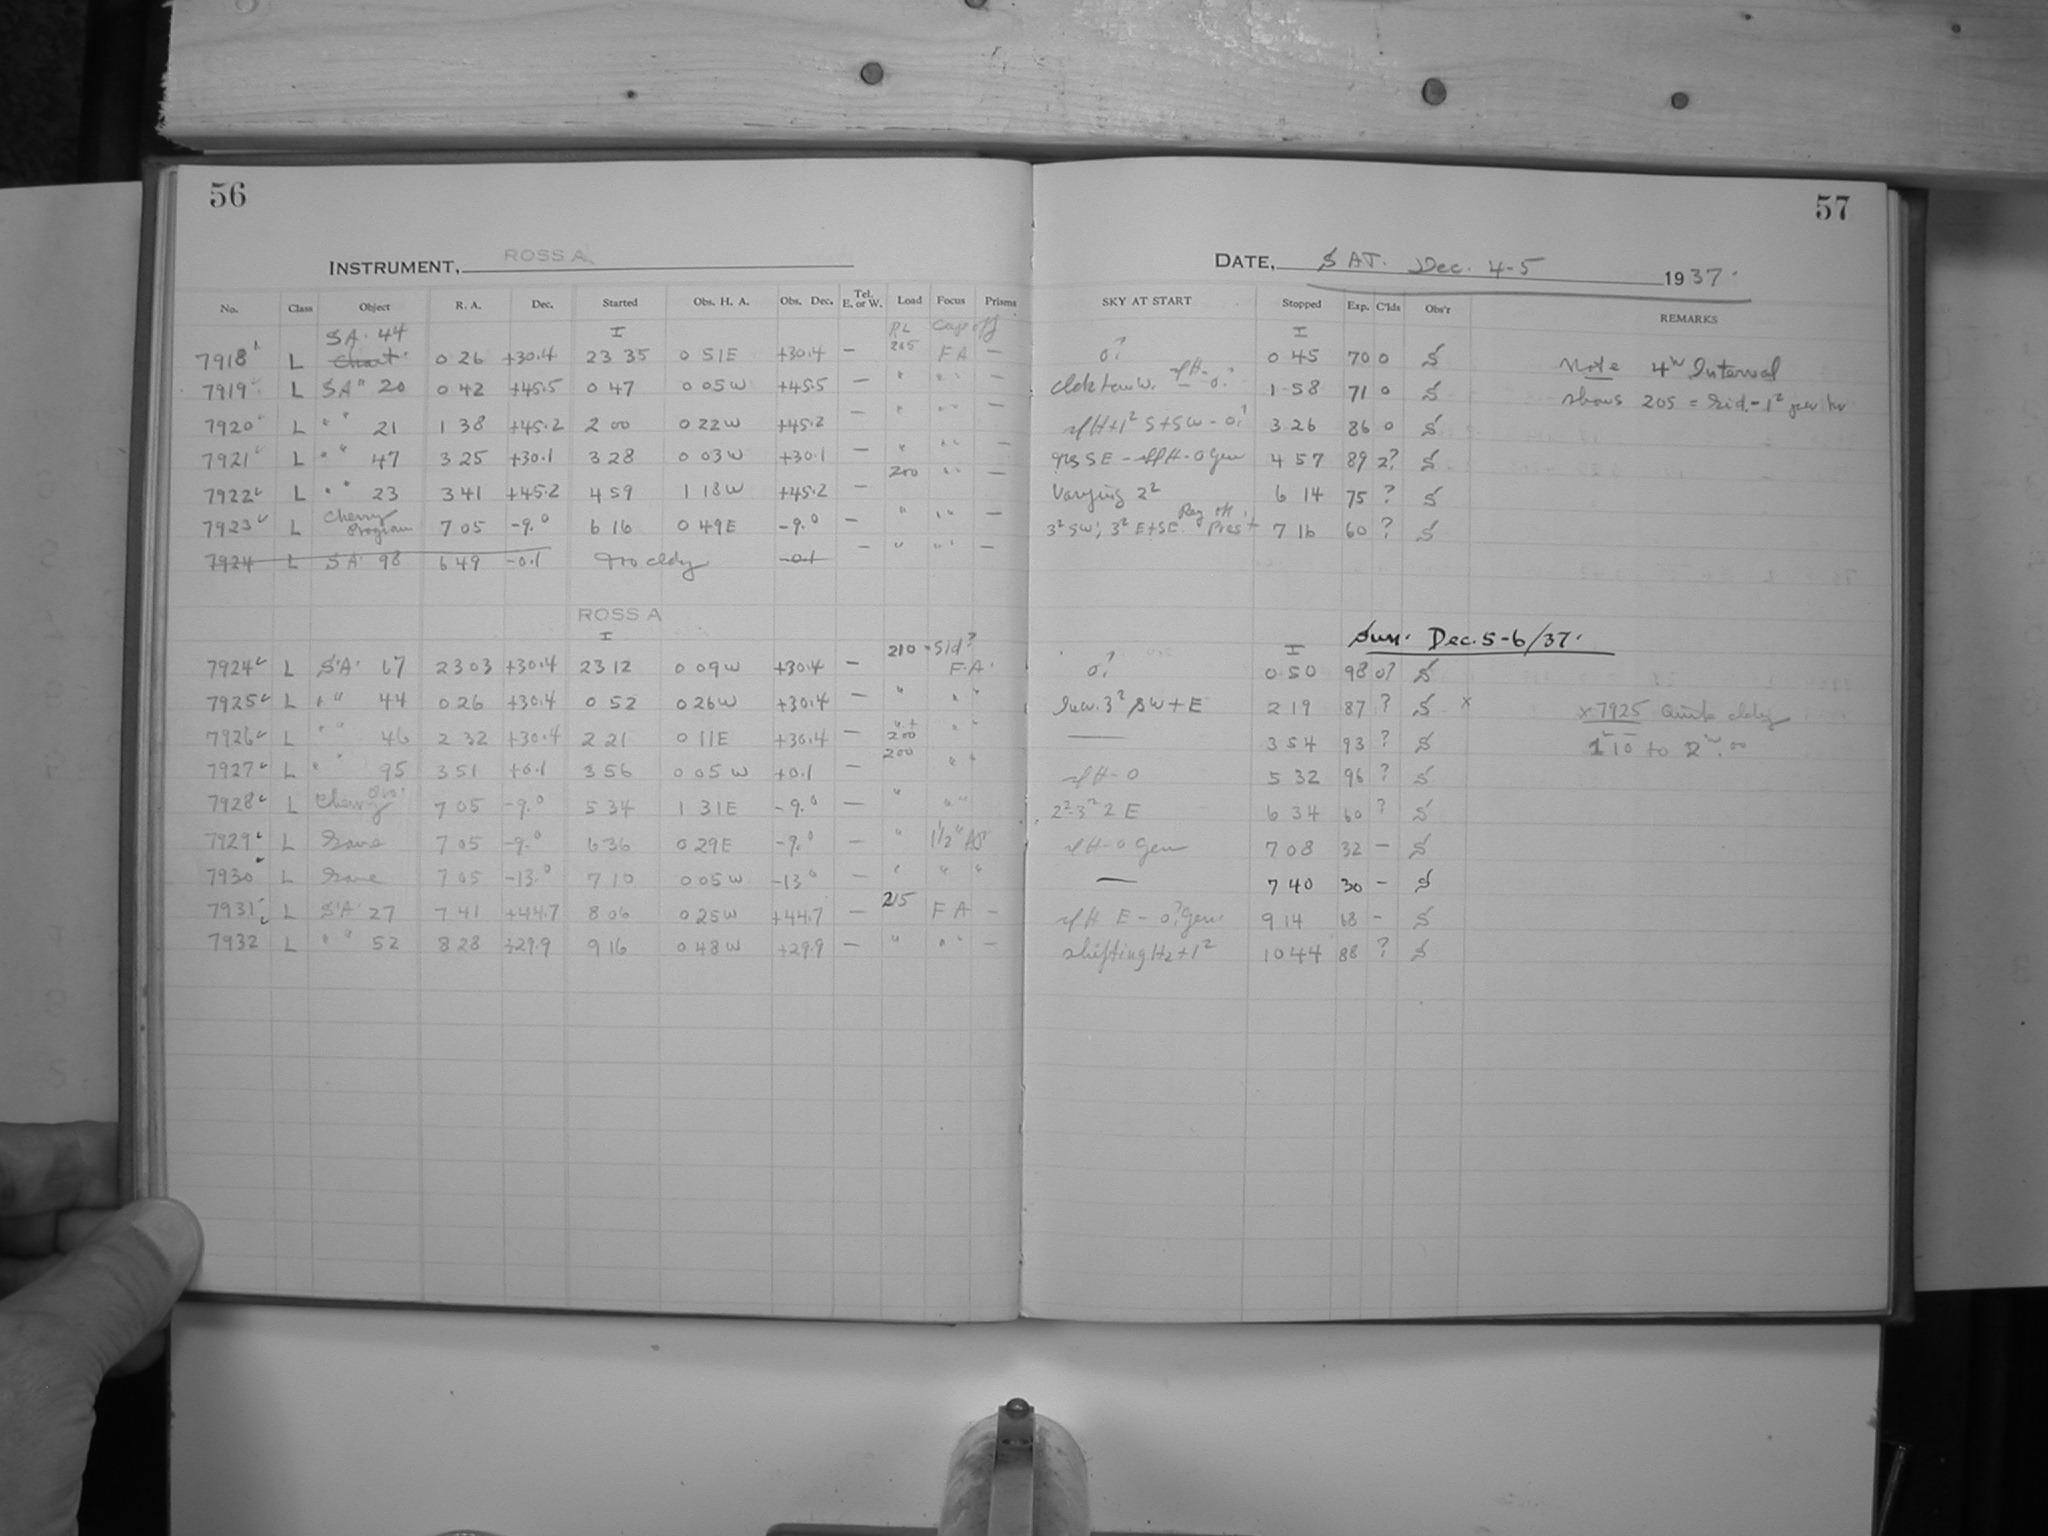 56
57
INSTRUMENT, ROSS A
DATE, SAT. Dec. 4-5 1937.
No. Class Object R. A. Dec. Started Obs. H. A. Obs. Dec. Tel. E. or W. Load Focus Prisms SKY AT START Stopped Exp. C'lds Obs'r REMARKS
SA. 44 I RL Caps off I
7918 L Chart 0 26 +30.4 23 35 0 51E +30.4 — 205 FA — 0? 0 45 70 0 S Note 4th Interval
7919 L SA " 20 0 42 +45.5 0 47 0 05W +45.5 — " " " — 1 58 71 0 S shows 205 = Sid. - 1² per hr
7920 L " " 21 1 38 +45.2 2 00 0 22W +45.2 — " " " — H+1² S+SW - 0? 3 26 86 0 S
7921 L " " 47 3 25 +30.1 3 28 0 03W +30.1 — " " " — SE - H-0 Gen 4 57 89 2? S
7922 L " " 23 3 41 +45.2 4 59 1 18W +45.2 — 200 " " — Varying 2² 6 14 75 ? S
7923 L Cherry Program 7 05 -9.° 6 16 0 49E -9.° — " " " — 3² SW; 3² E+SE. 7 16 60 ? S
7924 L SA 98 6 49 -0.1 Too cldy -0.1 — " " " —
ROSS A
I 210 = Sid? I Sun. Dec. 5-6/37.
7924 L S.A. 67 23 03 +30.4 23 12 0 09W +30.4 — F.A. 0? 0 50 98 0? S
7925 L " " 44 0 26 +30.4 0 52 0 26W +30.4 — " " " 3² SW + E 2 19 87 ? S x x 7925 Quite cldy
7926 L " " 46 2 32 +30.4 2 21 0 11E +30.4 — 200 " " — 3 54 93 ? S 1 10 to 2 00
7927 L " " 95 3 51 +0.1 3 56 0 05W +0.1 — 200 " " H-0 5 32 96 ? S
7928 L Cherry 7 05 -9.° 5 34 1 31E -9.° — " " " 2²-3² 2 E 6 34 60 ? S
7929 L Same 7 05 -9.° 6 36 0 29E -9.° — " 1½" H-0 Gen 7 08 32 — S
7930 L Same 7 05 -13.° 7 10 0 05W -13° — " " " — 7 40 30 - S
7931 L S.A. 27 7 41 +44.7 8 06 0 25W +44.7 — 215 FA — H E - 0? Gen. 9 14 68 - S
7932 L " " 52 8 28 +29.9 9 16 0 48W +29.9 — " " " — shifting H2+1² 10 44 88 ? S